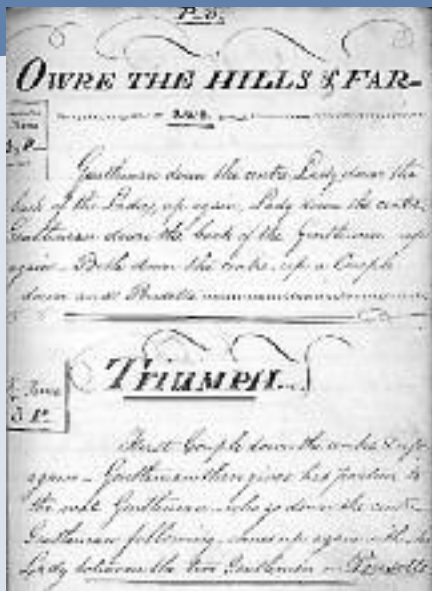 P. 5.
OWRE THE HILLS & FAR—
awa.
Gentleman down the centre Lady down the
back of the Ladies, up again, Lady down the centre,
Gentleman down the back of the Gentlemen up
again — Both down the centre, up a Couple
down and Pousette
TRIUMPH.
3 P.
First Couple down the centre & up
again — Gentleman then gives his partner to
the next Gentleman — who go down the centre
Gentleman following — comes up again with the
Lady between the two Gentlemen — Pousette